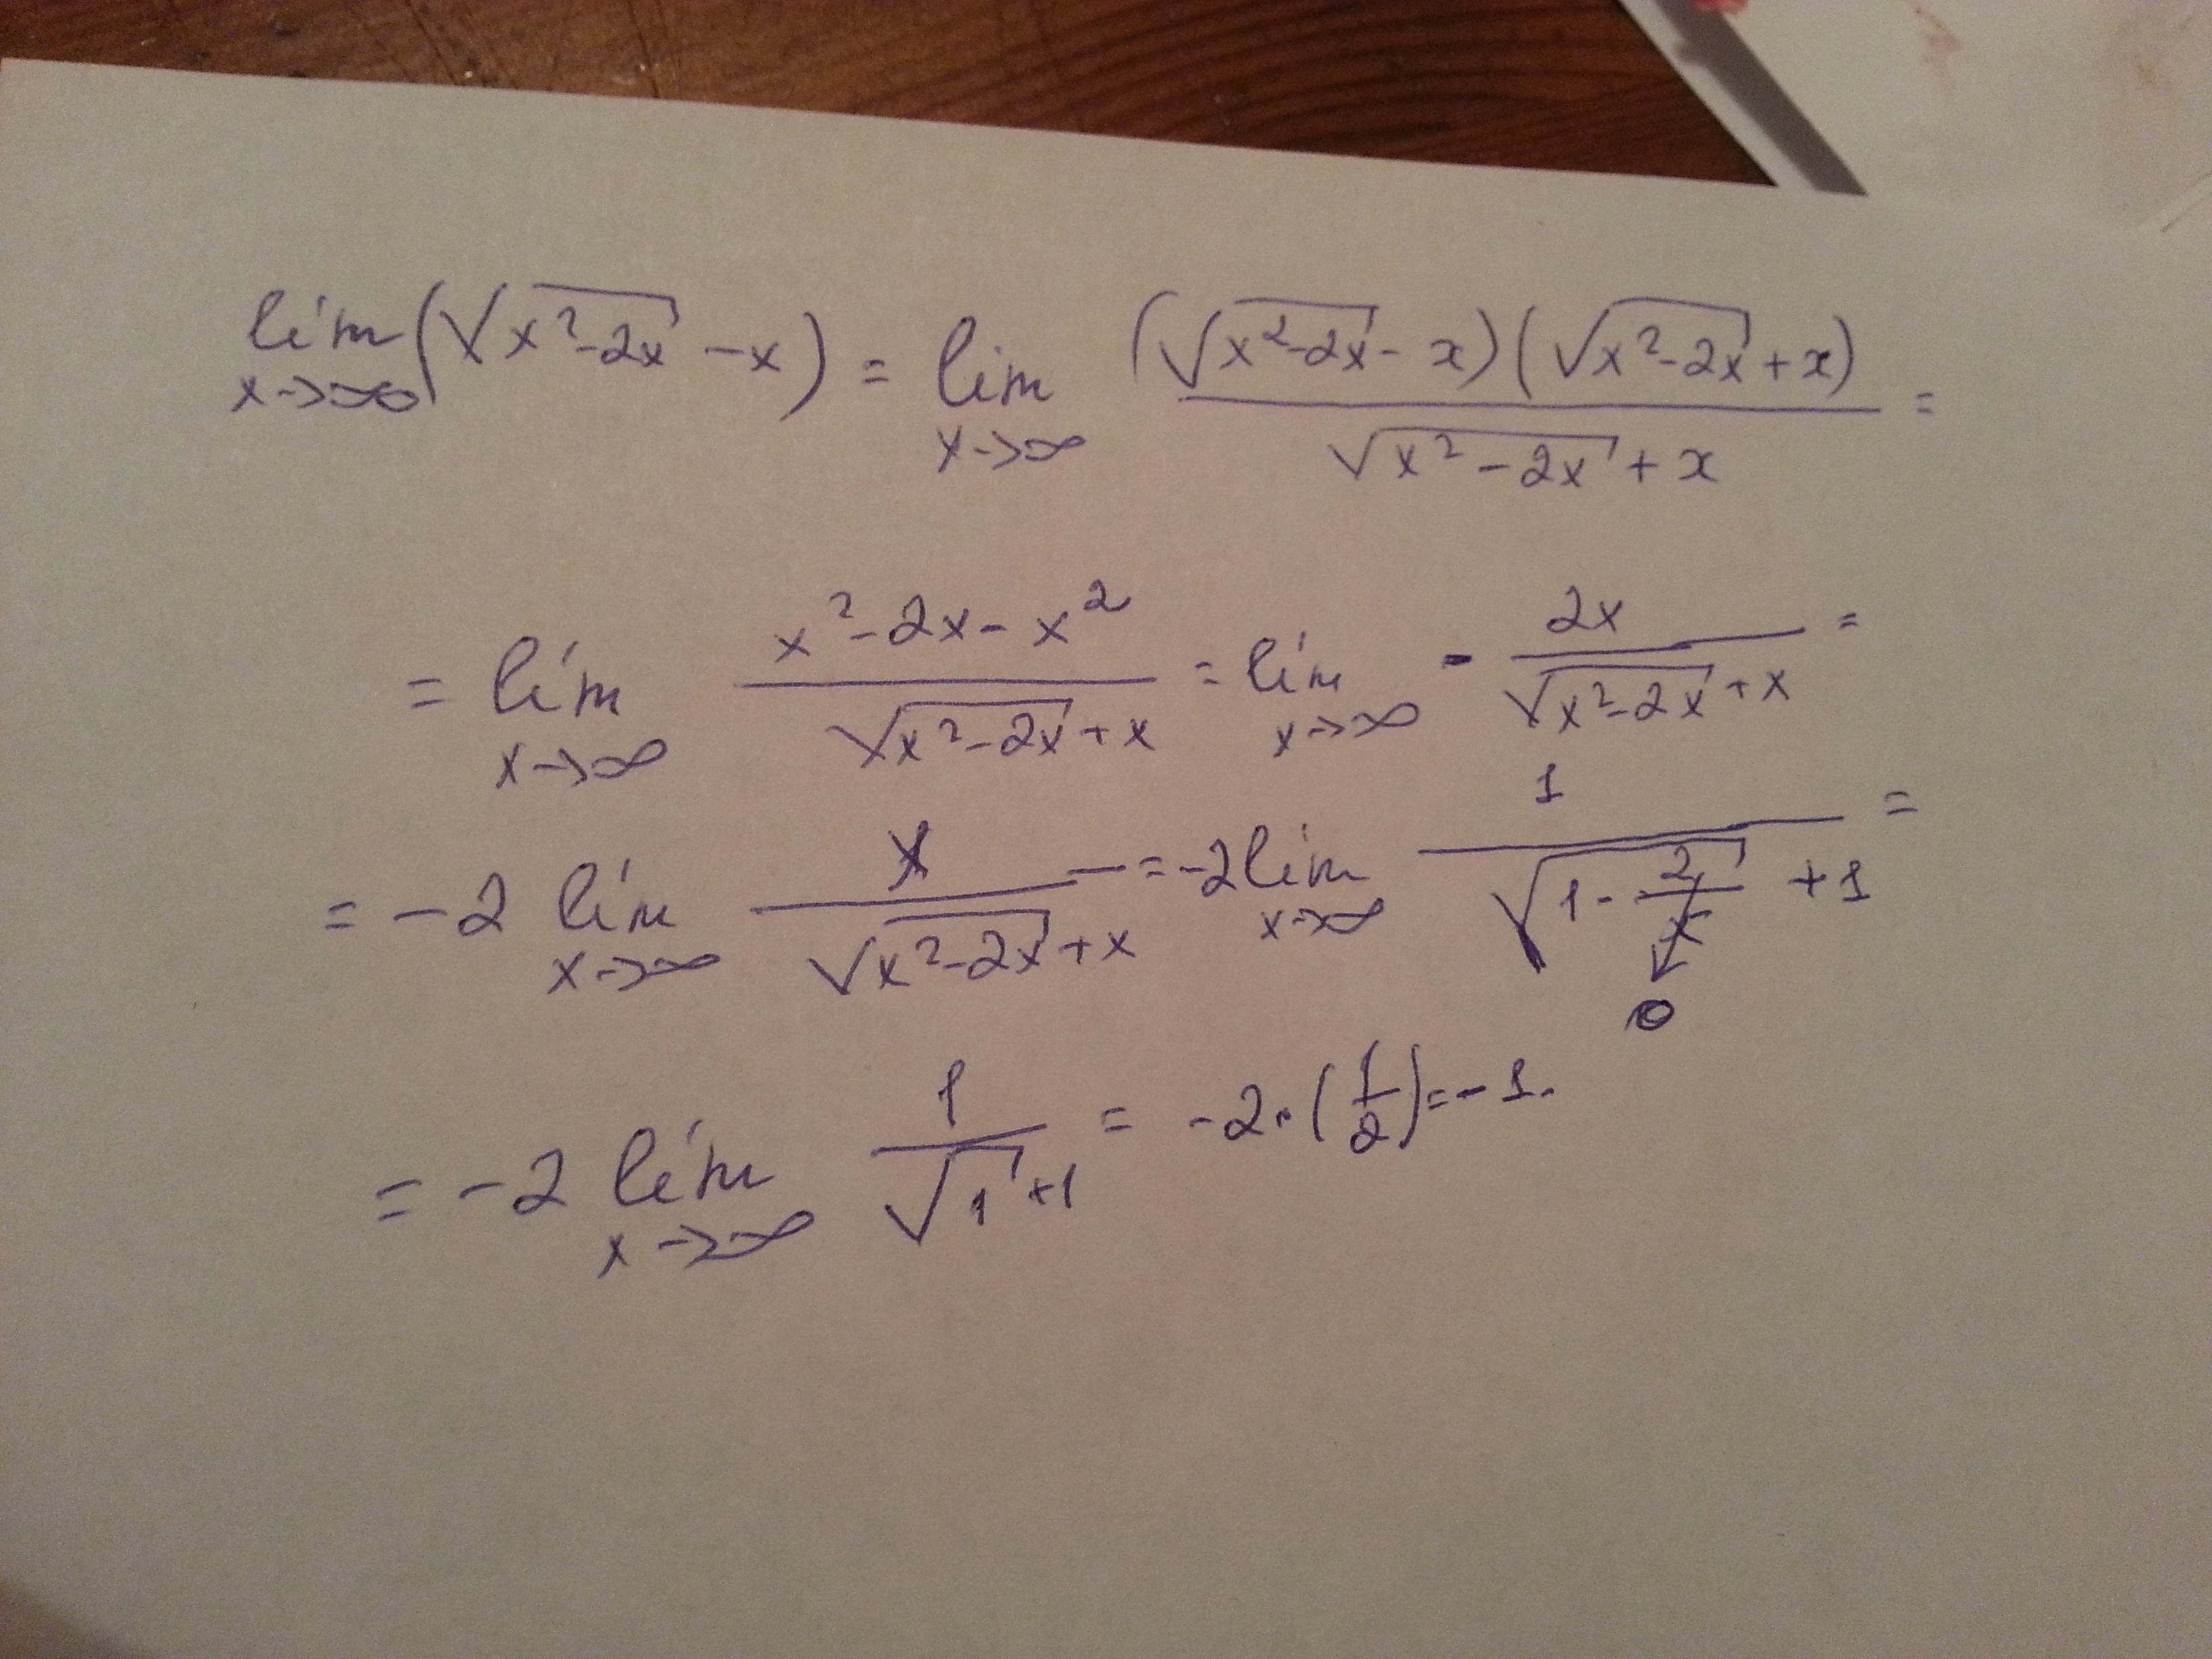 lim x→∞ (√(x²-2x) - x) = lim x→∞ (√(x²-2x) - x)(√(x²-2x) + x) / (√(x²-2x) + x) =
= lim x→∞ (x²-2x-x²) / (√(x²-2x) + x) = lim x→∞ - 2x / (√(x²-2x) + x) =
= -2 lim x→∞ x / (√(x²-2x) + x) = -2 lim x→∞ 1 / (√(1 - 2/x) + 1) =
→ 0
= -2 lim x→∞ 1 / (√1 + 1) = -2·(1/2) = -1.